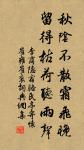 秋陰不散霜飛晚
留得枯荷聽雨聲
李商隱宿駱氏亭寄懷
崔雍崔袞詞典網集